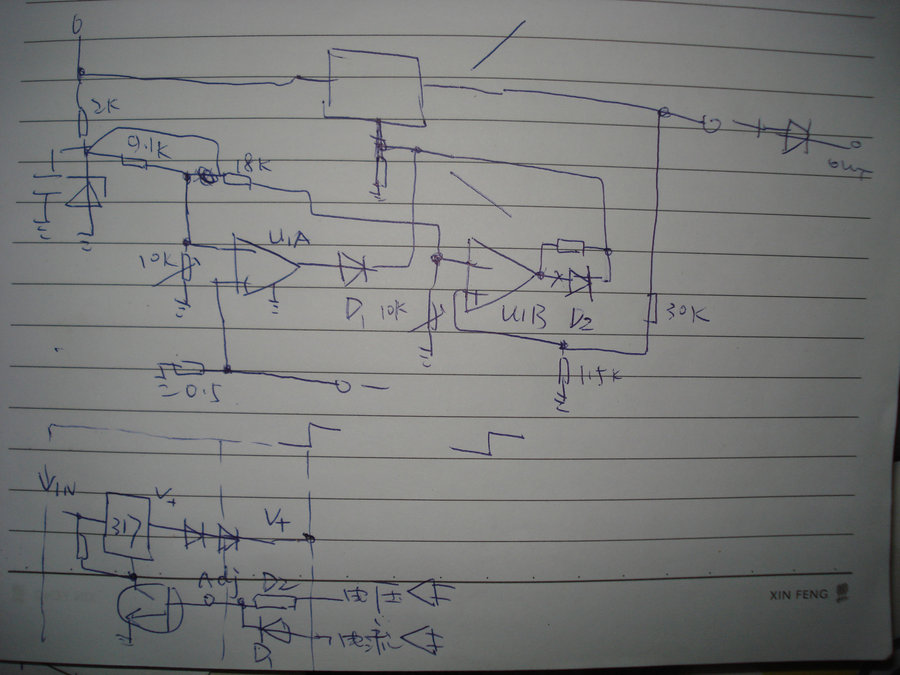 2K
9.1K
18K
U1A
10K
D1
10K
U1B
D2
30K
1.5K
0.5
out
VIN
317
V+
V+
Adj
D2
电压
电流
D1
XIN FENG